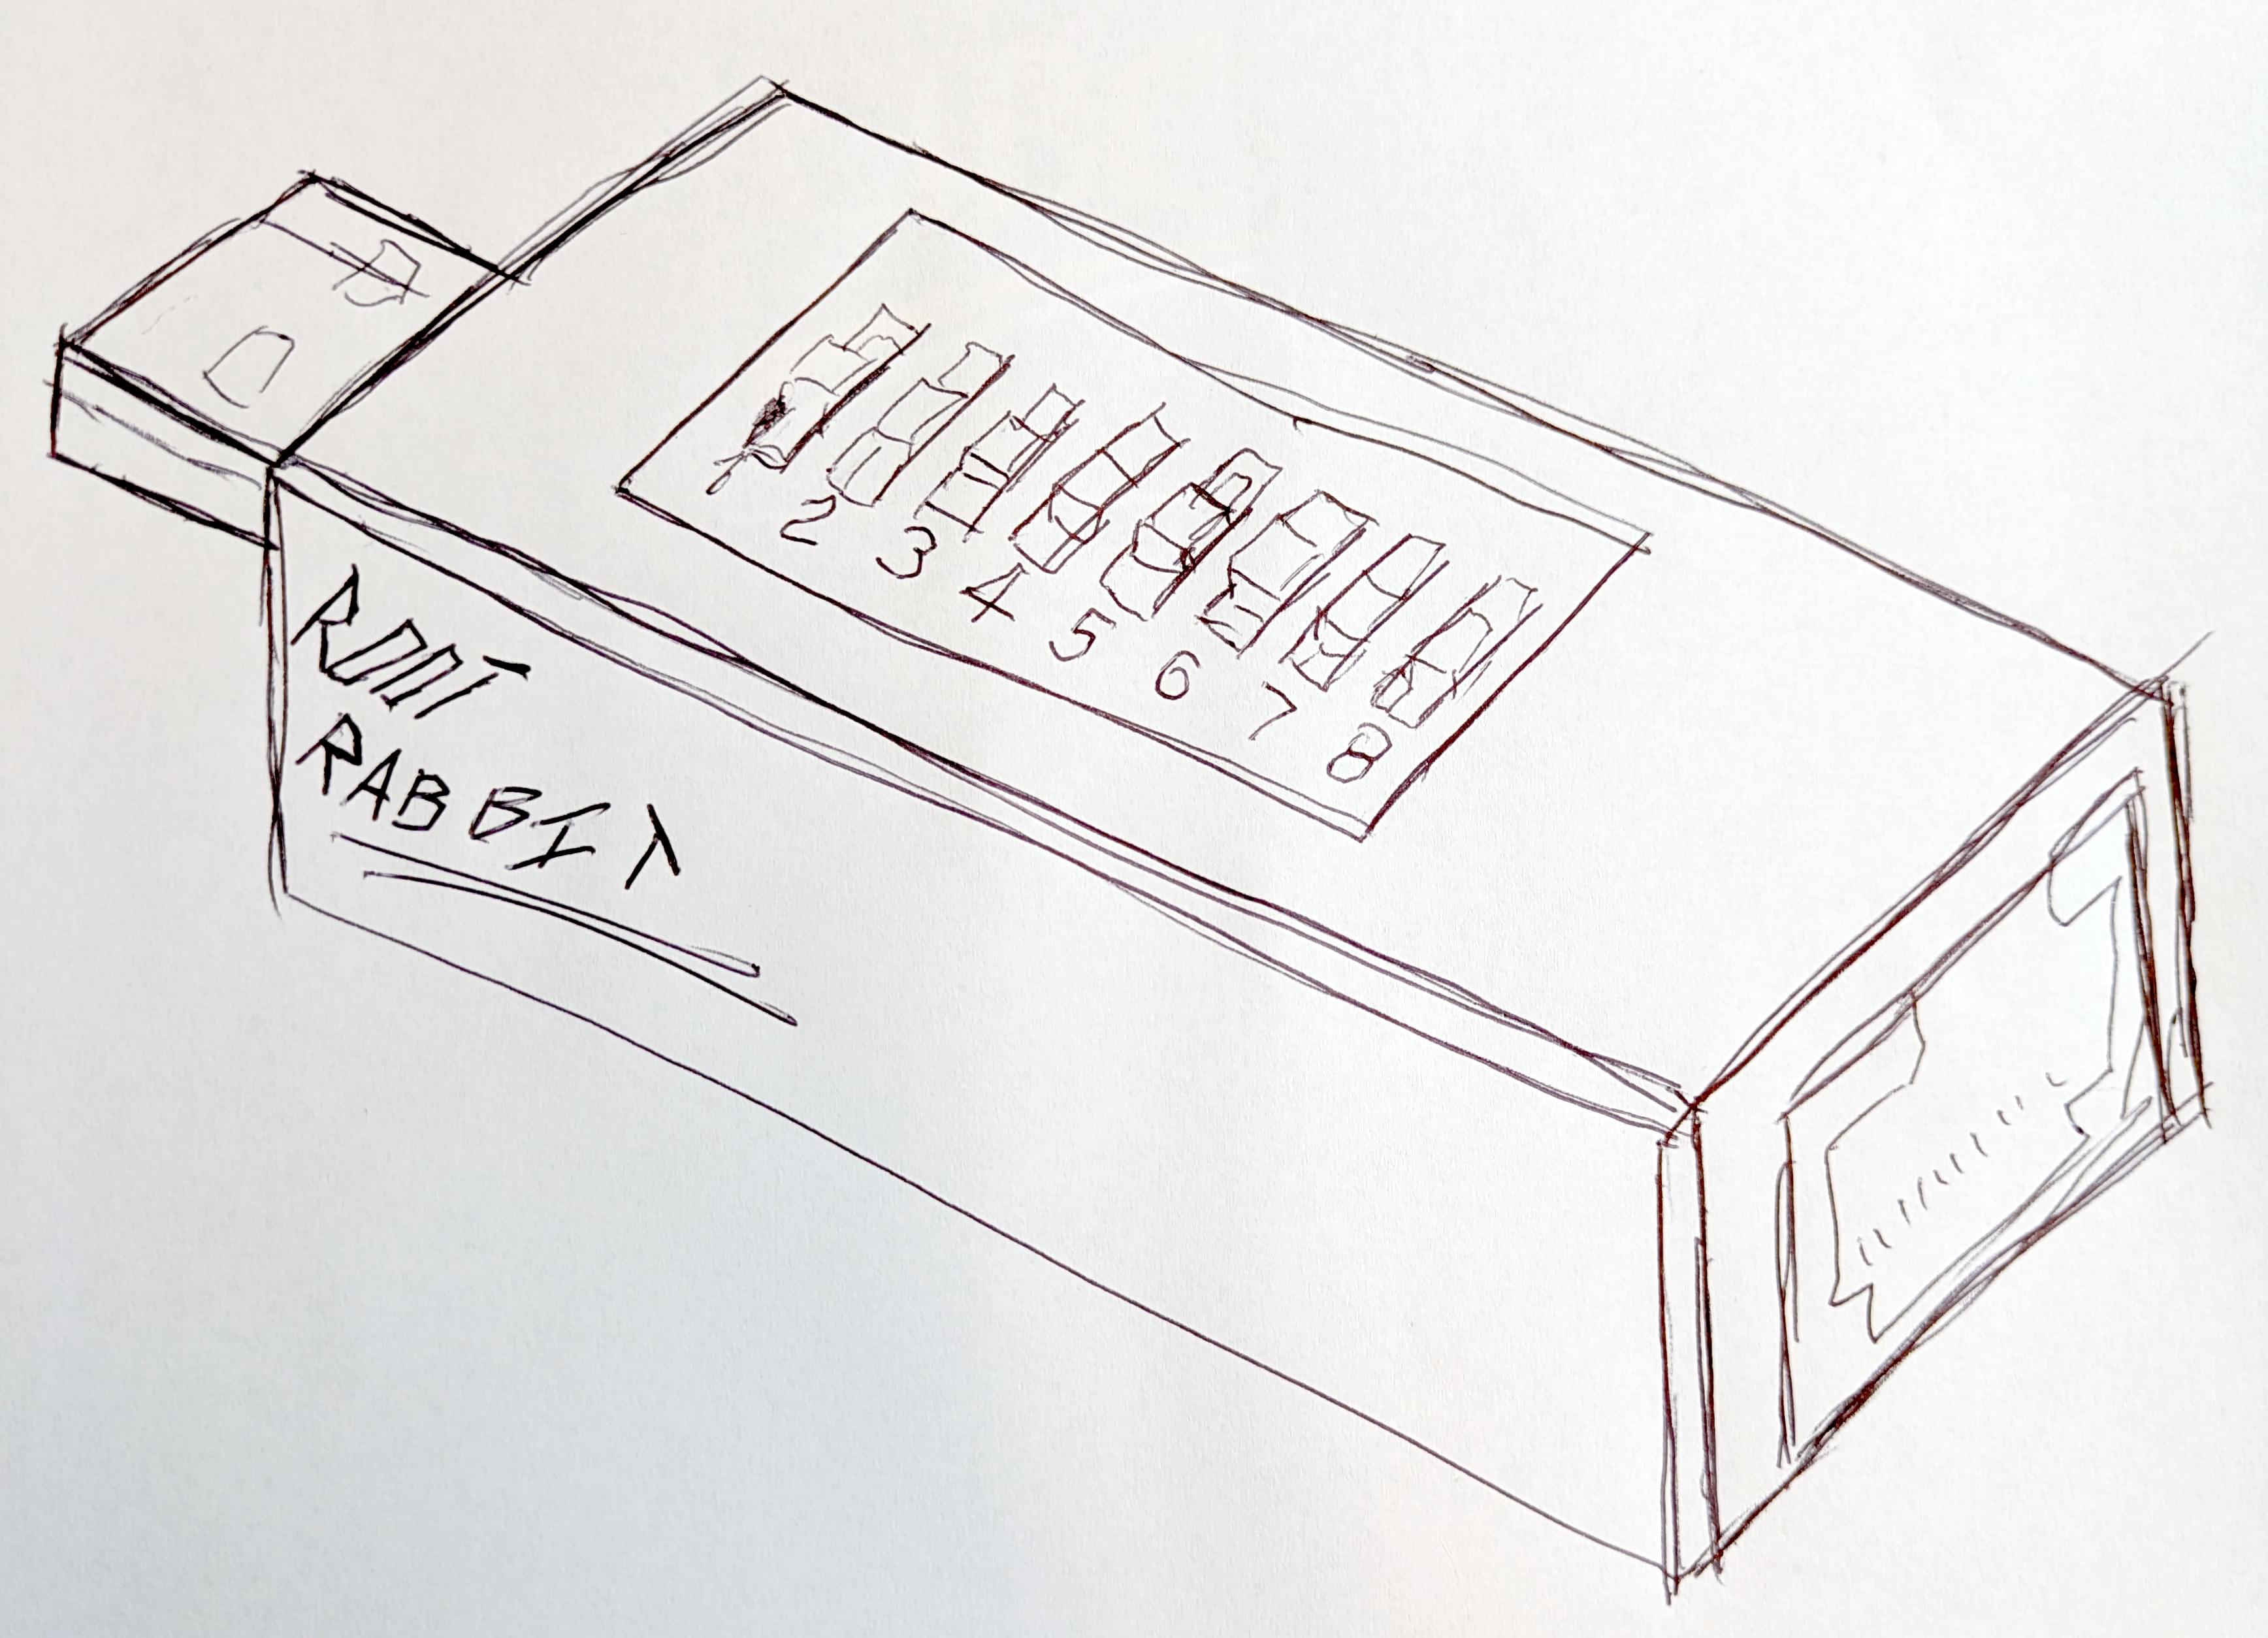 1 2 3 4 5 6 7 8
ROOT
RABBIT